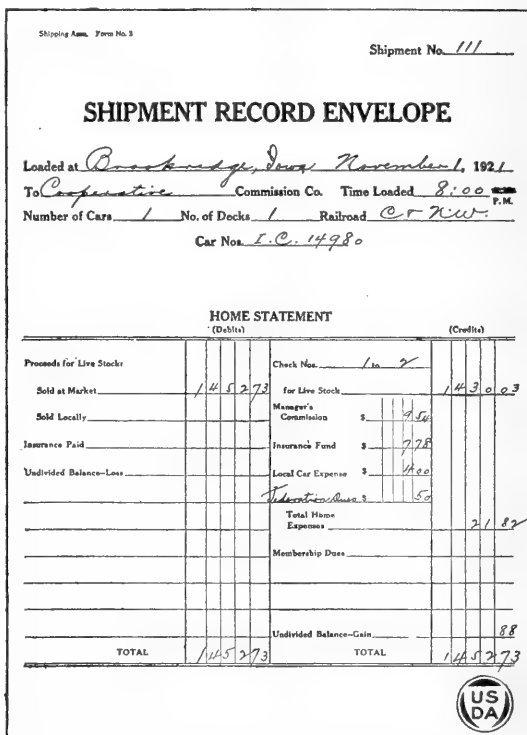 Shipping Assn. Form No. 3
Shipment No. 111
SHIPMENT RECORD ENVELOPE
Loaded at Brookridge, Iowa November 1, 1921
To Cooperative Commission Co. Time Loaded 8:00 P.M.
Number of Cars 1 No. of Decks 1 Railroad C & N.W.
Car Nos. I.C. 14980
HOME STATEMENT
(Debits) (Credits)
Proceeds for Live Stocks Check Nos. 1 to 2
Sold at Market 1 4 5 2 73 for Live Stock 1 4 3 0 03
Sold Locally Manager's Commission $ 9 54
Insurance Paid Insurance Fund $ 7 78
Undivided Balance—Loss Local Car Expense $ 4 00
Federation Dues $ 50
Total Home Expenses 2 1 82
Membership Dues
Undivided Balance—Gain 88
TOTAL 1 4 5 2 73 TOTAL 1 4 5 2 73
US
DA